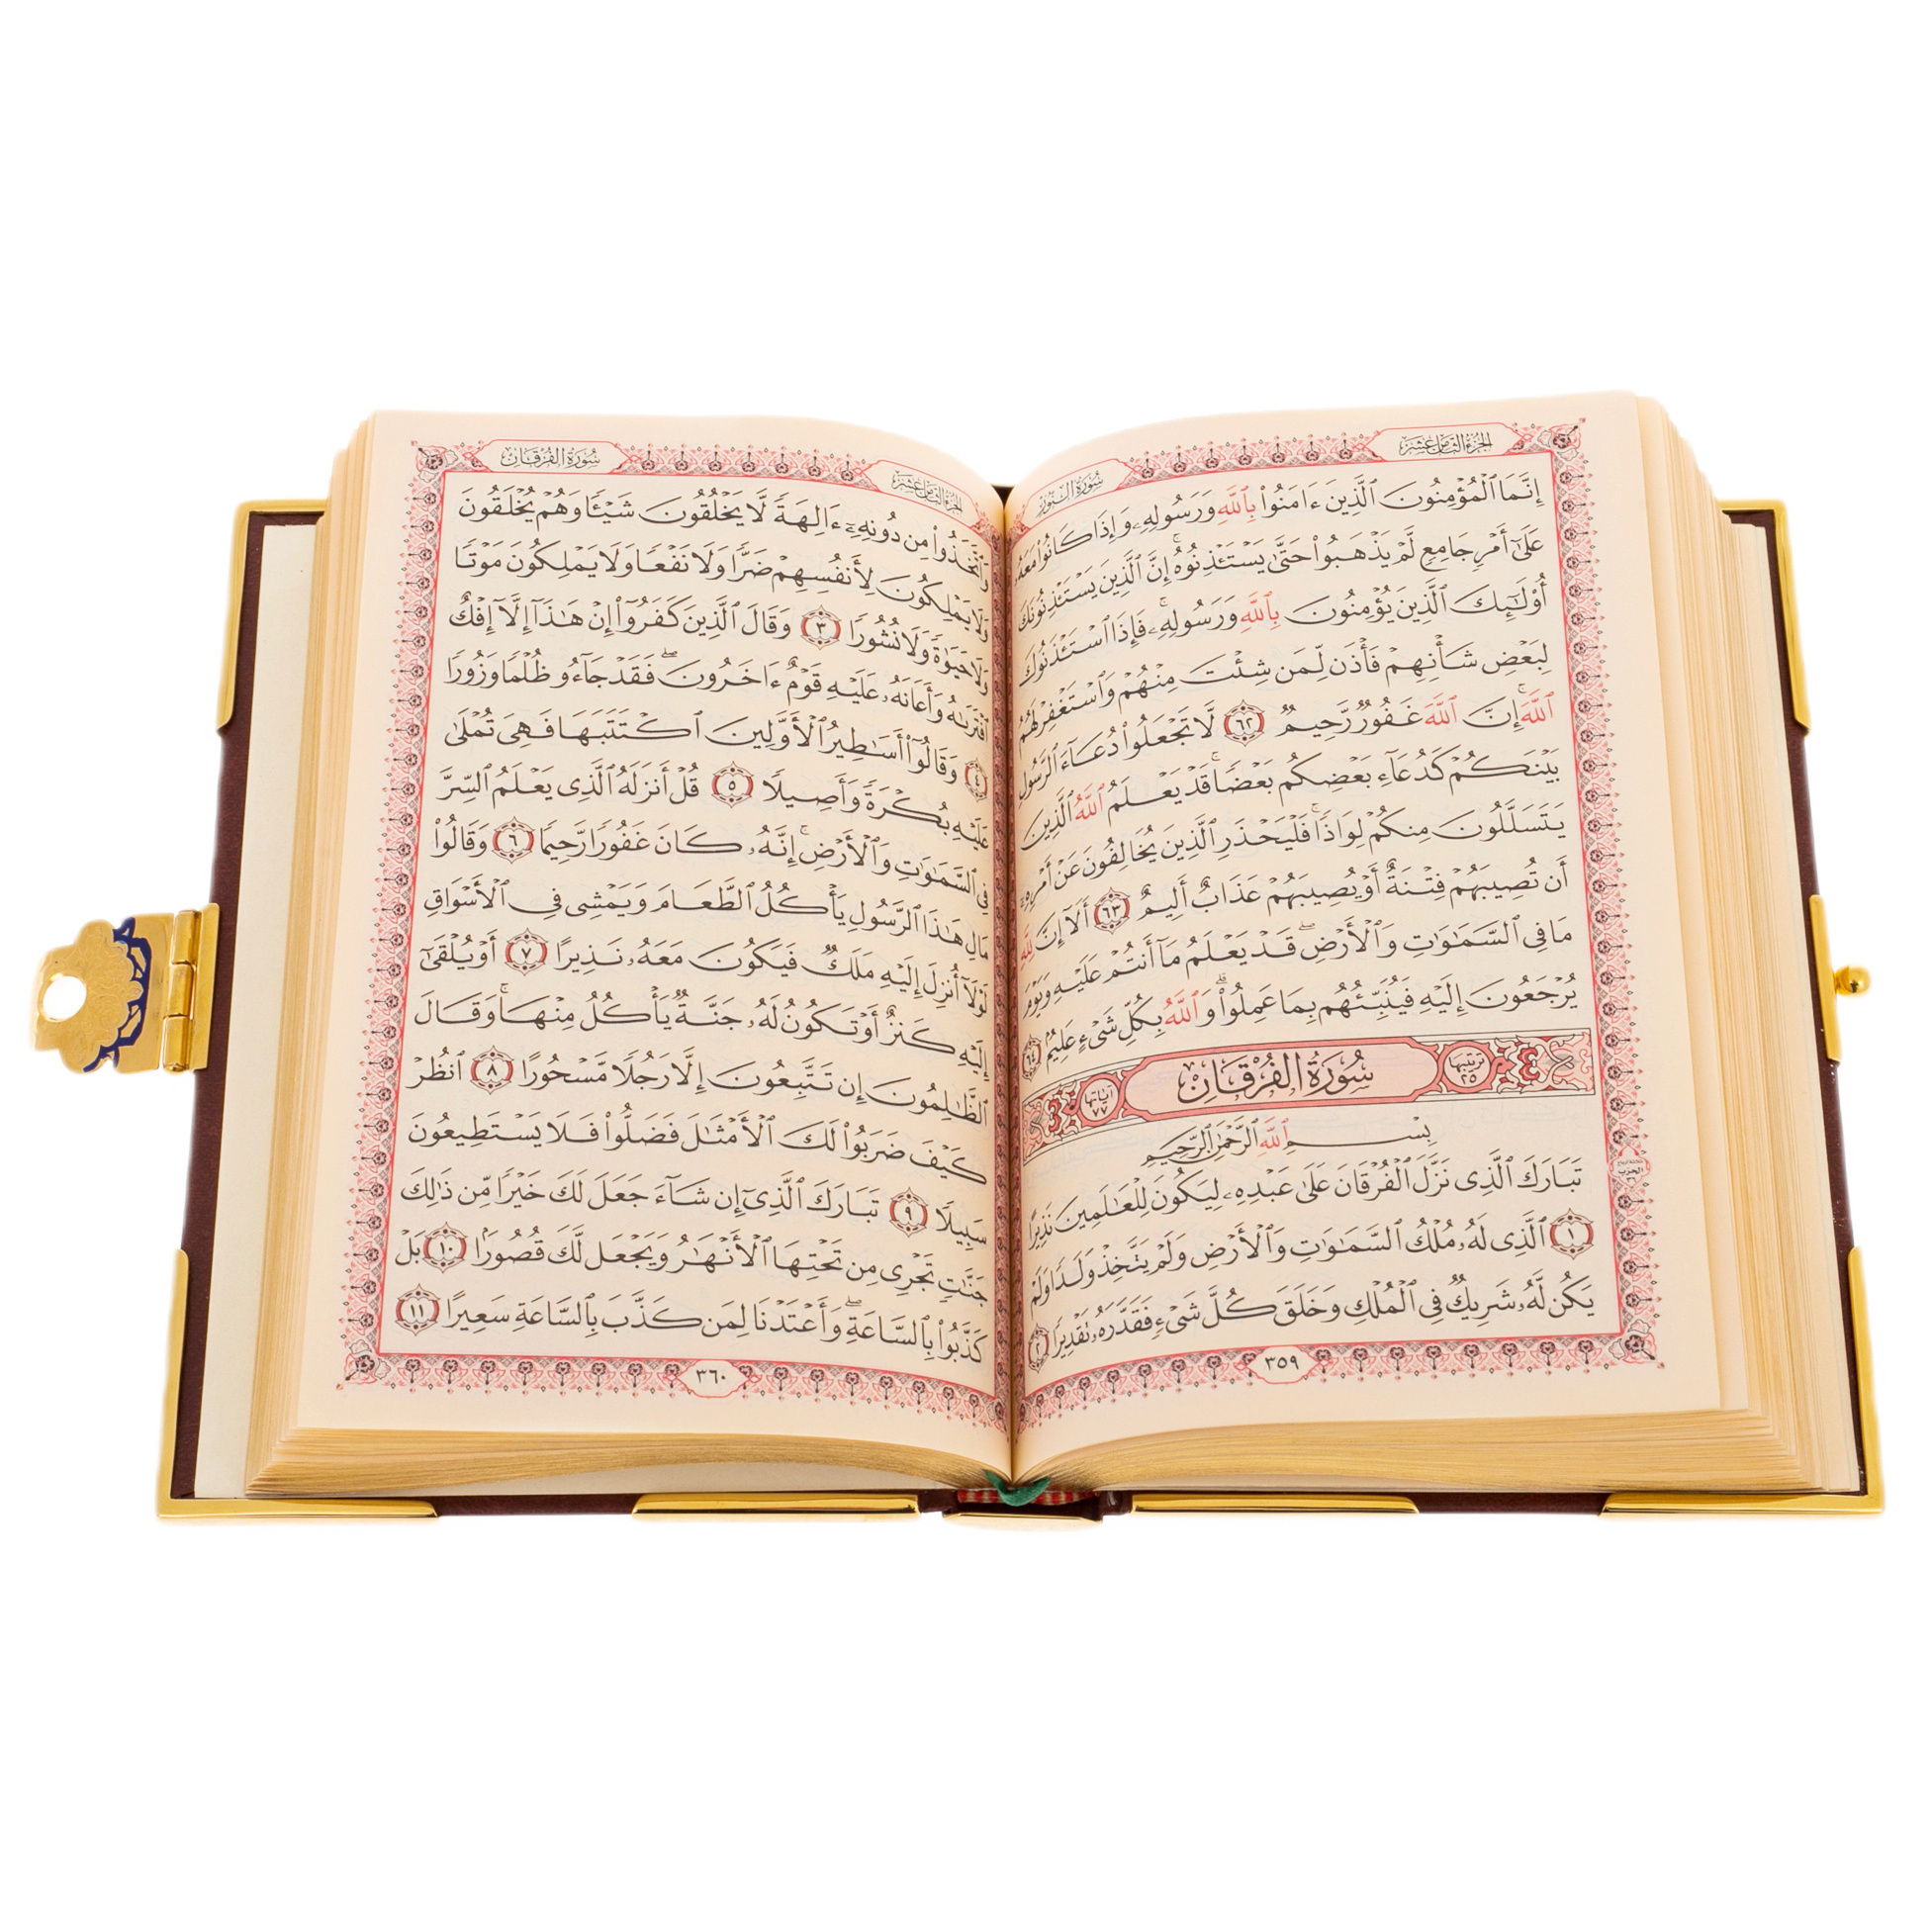 الجزء الثامن عشر
سورة النور
إِنَّمَا ٱلْمُؤْمِنُونَ ٱلَّذِينَ ءَامَنُوا۟ بِٱللَّهِ وَرَسُولِهِۦ وَإِذَا كَانُوا۟ مَعَهُۥ
عَلَىٰٓ أَمْرٍ جَامِعٍ لَّمْ يَذْهَبُوا۟ حَتَّىٰ يَسْتَـْٔذِنُوهُ ۚ إِنَّ ٱلَّذِينَ يَسْتَـْٔذِنُونَكَ
أُو۟لَـٰٓئِكَ ٱلَّذِينَ يُؤْمِنُونَ بِٱللَّهِ وَرَسُولِهِۦ ۚ فَإِذَا ٱسْتَـْٔذَنُوكَ
لِبَعْضِ شَأْنِهِمْ فَأْذَن لِّمَن شِئْتَ مِنْهُمْ وَٱسْتَغْفِرْ لَهُمُ
ٱللَّهَ ۚ إِنَّ ٱللَّهَ غَفُورٌ رَّحِيمٌ ٦٢ لَّا تَجْعَلُوا۟ دُعَآءَ ٱلرَّسُولِ
بَيْنَكُمْ كَدُعَآءِ بَعْضِكُم بَعْضًا ۚ قَدْ يَعْلَمُ ٱللَّهُ ٱلَّذِينَ
يَتَسَلَّلُونَ مِنكُمْ لِوَاذًا ۚ فَلْيَحْذَرِ ٱلَّذِينَ يُخَالِفُونَ عَنْ أَمْرِهِۦٓ
أَن تُصِيبَهُمْ فِتْنَةٌ أَوْ يُصِيبَهُمْ عَذَابٌ أَلِيمٌ ٦٣ أَلَآ إِنَّ لِلَّهِ
مَا فِى ٱلسَّمَـٰوَٰتِ وَٱلْأَرْضِ ۖ قَدْ يَعْلَمُ مَآ أَنتُمْ عَلَيْهِ وَيَوْمَ
يُرْجَعُونَ إِلَيْهِ فَيُنَبِّئُهُم بِمَا عَمِلُوا۟ ۗ وَٱللَّهُ بِكُلِّ شَىْءٍ عَلِيمٌۢ ٦٤
ترتيبها ٢٥ سورة الفرقان آياتها ٧٧
بِسْمِ ٱللَّهِ ٱلرَّحْمَـٰنِ ٱلرَّحِيمِ
تَبَارَكَ ٱلَّذِى نَزَّلَ ٱلْفُرْقَانَ عَلَىٰ عَبْدِهِۦ لِيَكُونَ لِلْعَـٰلَمِينَ نَذِيرًا
١ ٱلَّذِى لَهُۥ مُلْكُ ٱلسَّمَـٰوَٰتِ وَٱلْأَرْضِ وَلَمْ يَتَّخِذْ وَلَدًا وَلَمْ
يَكُن لَّهُۥ شَرِيكٌ فِى ٱلْمُلْكِ وَخَلَقَ كُلَّ شَىْءٍ فَقَدَّرَهُۥ تَقْدِيرًا ٢
٣٥٩
الجزء الثامن عشر
سورة الفرقان
وَٱتَّخَذُوا۟ مِن دُونِهِۦٓ ءَالِهَةً لَّا يَخْلُقُونَ شَيْـًٔا وَهُمْ يُخْلَقُونَ
وَلَا يَمْلِكُونَ لِأَنفُسِهِمْ ضَرًّا وَلَا نَفْعًا وَلَا يَمْلِكُونَ مَوْتًا
وَلَا حَيَوٰةً وَلَا نُشُورًا ٣ وَقَالَ ٱلَّذِينَ كَفَرُوٓا۟ إِنْ هَـٰذَآ إِلَّآ إِفْكٌ
ٱفْتَرَىٰهُ وَأَعَانَهُۥ عَلَيْهِ قَوْمٌ ءَاخَرُونَ ۖ فَقَدْ جَآءُو ظُلْمًا وَزُورًا
٤ وَقَالُوٓا۟ أَسَـٰطِيرُ ٱلْأَوَّلِينَ ٱكْتَتَبَهَا فَهِىَ تُمْلَىٰ
عَلَيْهِ بُكْرَةً وَأَصِيلًا ٥ قُلْ أَنزَلَهُ ٱلَّذِى يَعْلَمُ ٱلسِّرَّ
فِى ٱلسَّمَـٰوَٰتِ وَٱلْأَرْضِ ۚ إِنَّهُۥ كَانَ غَفُورًا رَّحِيمًا ٦ وَقَالُوا۟
مَالِ هَـٰذَا ٱلرَّسُولِ يَأْكُلُ ٱلطَّعَامَ وَيَمْشِى فِى ٱلْأَسْوَاقِ
لَوْلَآ أُنزِلَ إِلَيْهِ مَلَكٌ فَيَكُونَ مَعَهُۥ نَذِيرًا ٧ أَوْ يُلْقَىٰٓ
إِلَيْهِ كَنزٌ أَوْ تَكُونُ لَهُۥ جَنَّةٌ يَأْكُلُ مِنْهَا ۚ وَقَالَ
ٱلظَّـٰلِمُونَ إِن تَتَّبِعُونَ إِلَّا رَجُلًا مَّسْحُورًا ٨ ٱنظُرْ
كَيْفَ ضَرَبُوا۟ لَكَ ٱلْأَمْثَـٰلَ فَضَلُّوا۟ فَلَا يَسْتَطِيعُونَ
سَبِيلًا ٩ تَبَارَكَ ٱلَّذِىٓ إِن شَآءَ جَعَلَ لَكَ خَيْرًا مِّن ذَٰلِكَ
جَنَّـٰتٍ تَجْرِى مِن تَحْتِهَا ٱلْأَنْهَـٰرُ وَيَجْعَل لَّكَ قُصُورًۢا ١٠ بَلْ
كَذَّبُوا۟ بِٱلسَّاعَةِ ۖ وَأَعْتَدْنَا لِمَن كَذَّبَ بِٱلسَّاعَةِ سَعِيرًا ١١
٣٦٠